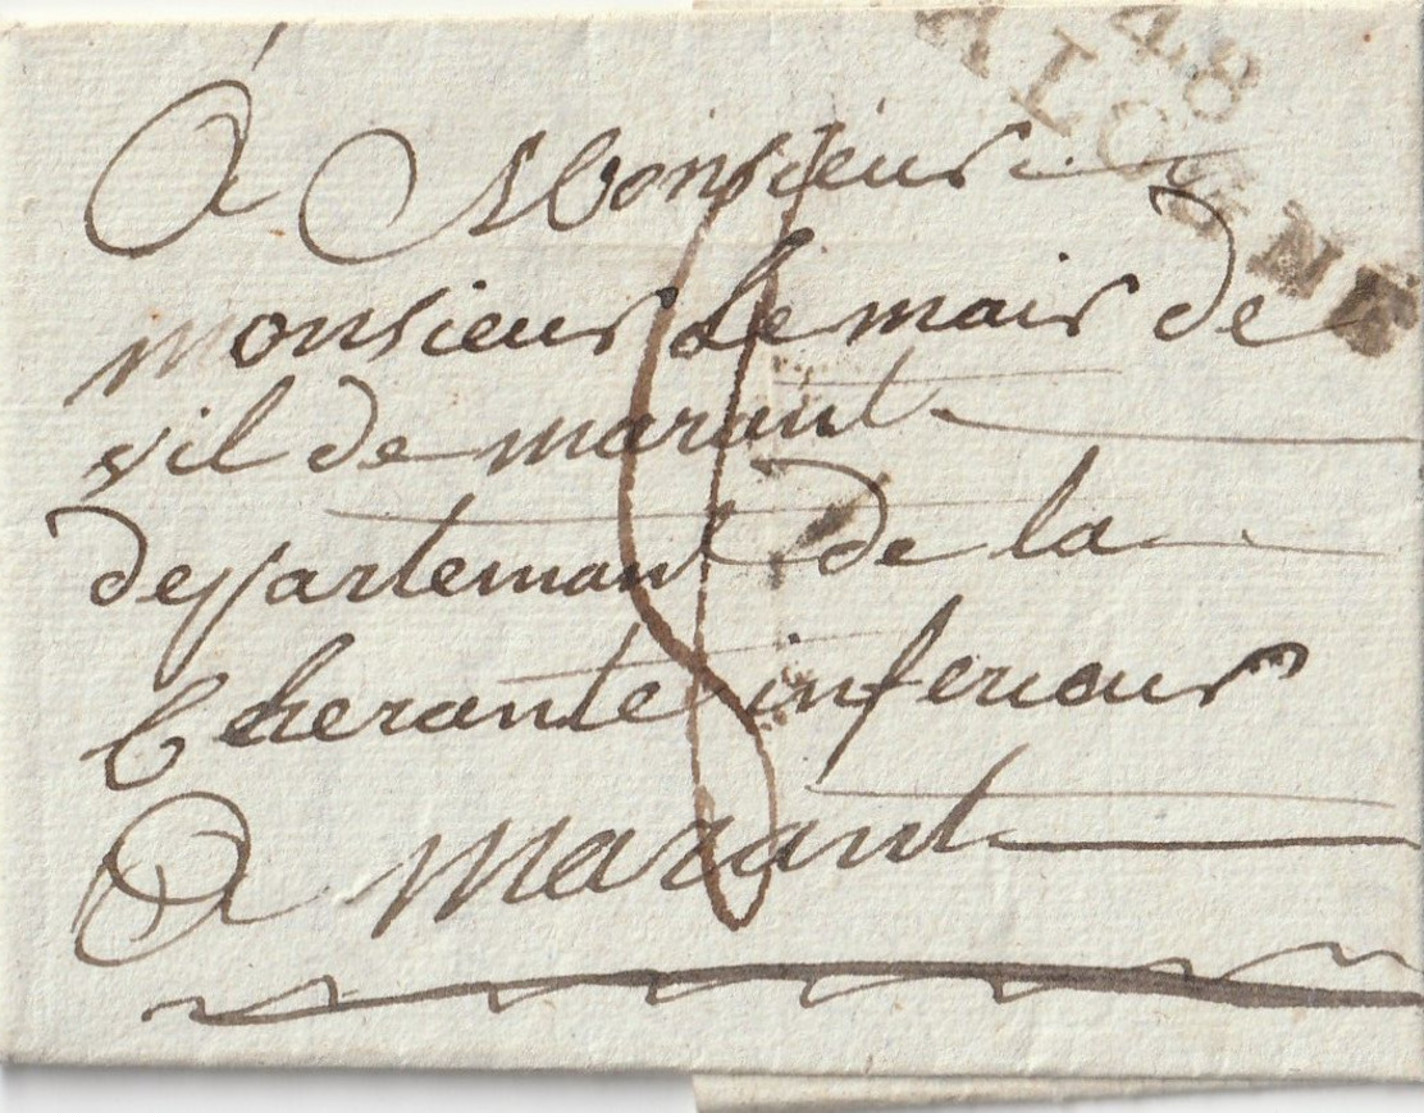 48
ALOGNE
A Monsieur
monsieur Le mair de
vil de marant
departemant de la
Cherante inferieur
A Marant
8